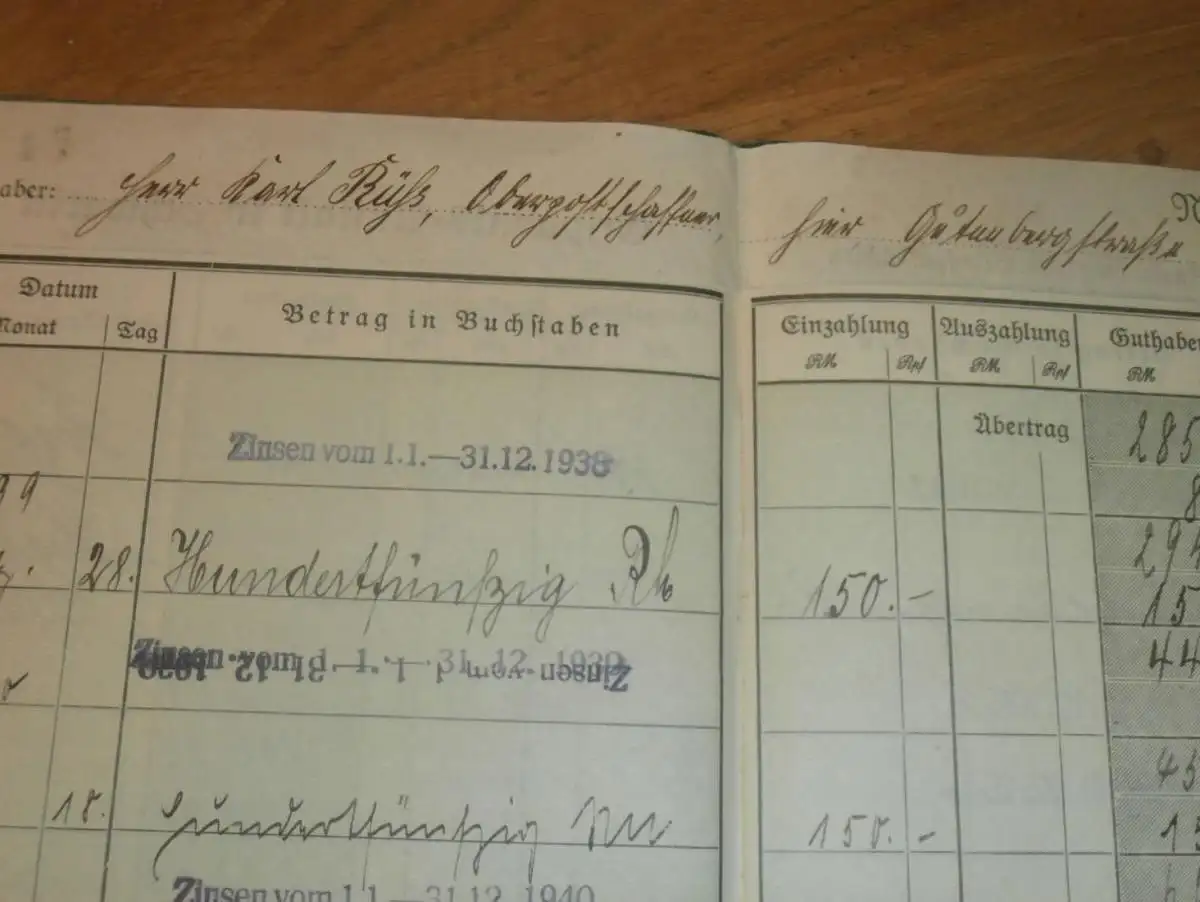 aber: Herr Karl Rüß, Oberpostschaffner, hier Gutenbergstraße
Datum
Monat Tag Betrag in Buchstaben Einzahlung Auszahlung Guthaben
RM Rpf RM Rpf RM
Übertrag 285
Zinsen vom 1.1.—31.12.1938 8
28. Hundertfünfzig RM 150.-
15
Zinsen vom 1. 1. — 31. 12. 1939 44
Zinsen vom 1. 1. — 31. 12. 1939
18. Hundertfünfzig RM 150.-
Zinsen vom 1.1.—31.12.1940